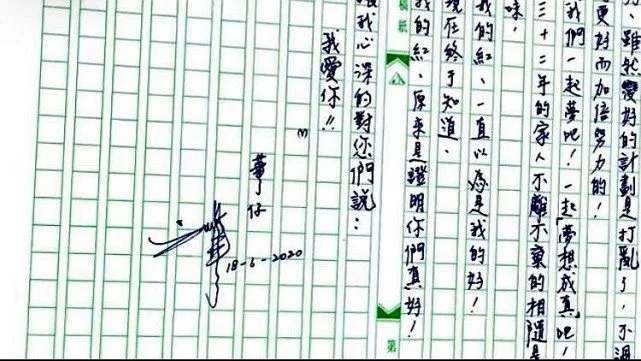 ，雖然變好的計劃是打亂了，不過
更好而加倍努力的！
我們一起夢吧！一起「夢想成真」吧！
三十二年的家人不離不棄的相隨是
味，
我的紅，一直以為是我的好！
現在終于知道，
我的紅，原來是證明你們真好！
稿紙
第
我心深的對您們說：
我愛你!!
(7)
董仔
18-6-2020